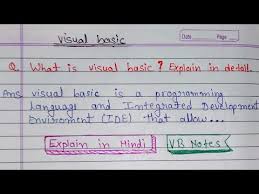 Date Page
visual basic
Q. What is visual basic? Explain in detail.
Ans visual basic is a programming
language and Integrated Development
Environment (IDE) that allow...
Explain in Hindi VB Notes